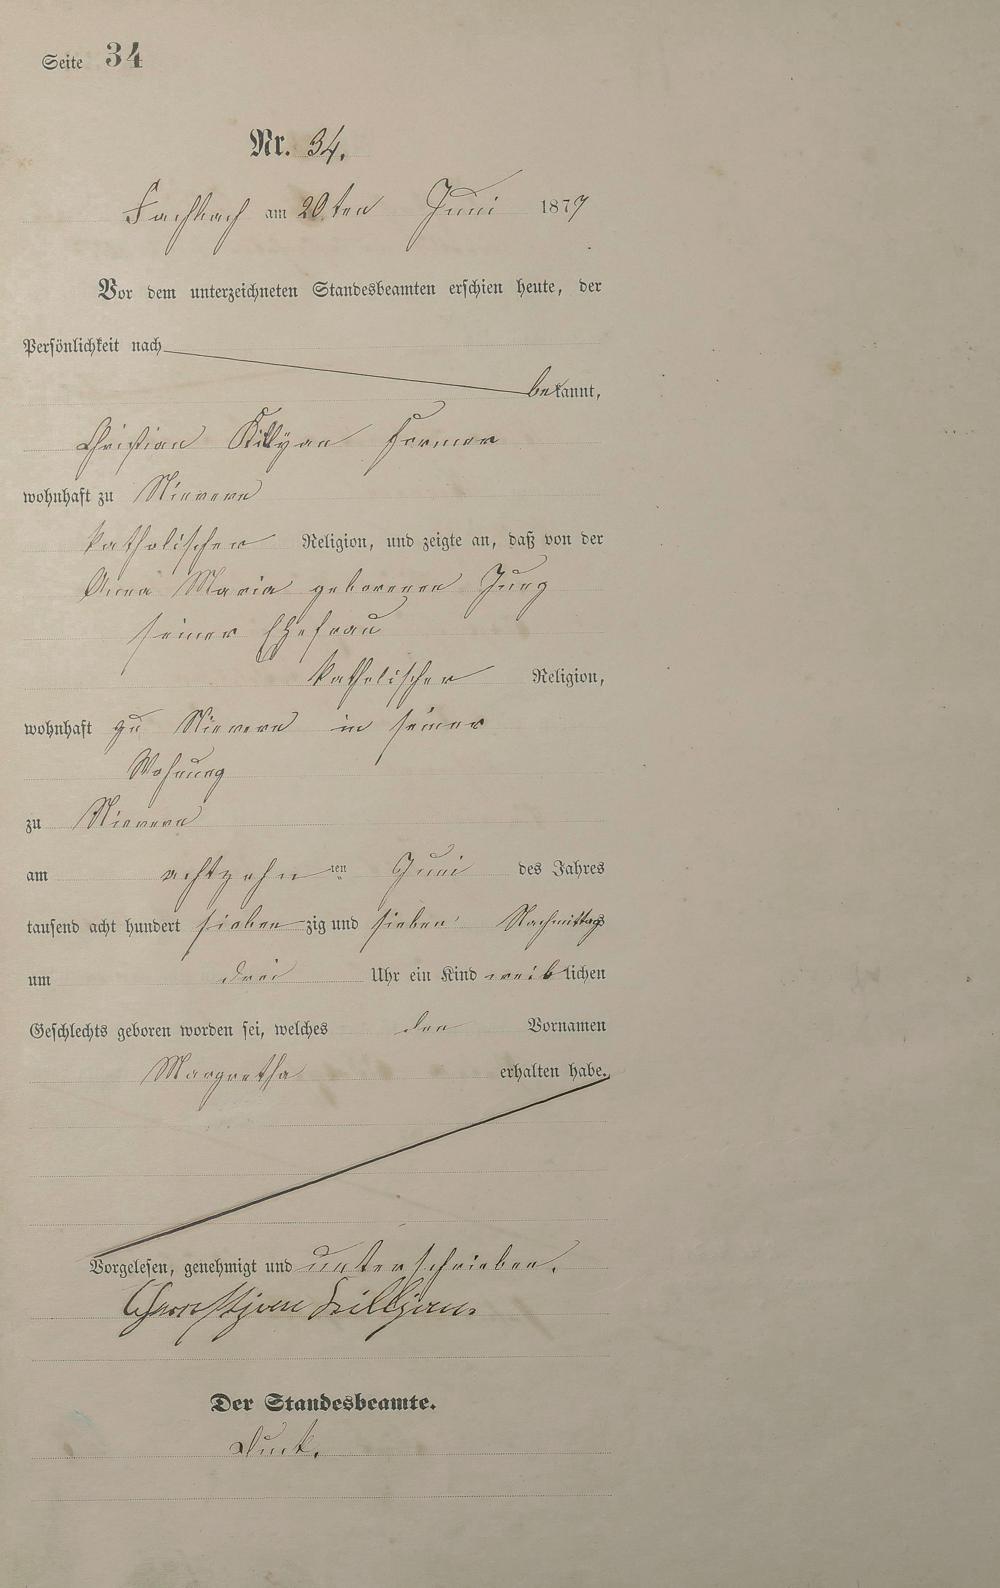 Seite 34
Nr. 34.
Fachbach am 20.ten Juni 1877
Vor dem unterzeichneten Standesbeamten erschien heute, der
Persönlichkeit nach
bekannt,
Christian Killyan Former
wohnhaft zu Nievern
katholischer Religion, und zeigte an, daß von der
Anna Maria geborenen Jung
seiner Ehefrau
katholischer Religion,
wohnhaft zu Nievern in seiner
Wohnung
zu Nievern
am achtzehnten Juni des Jahres
tausend acht hundert siebenzig und sieben Nachmittags
um drei Uhr ein Kind weiblichen
Geschlechts geboren worden sei, welches den Vornamen
Margretha erhalten habe.
Vorgelesen, genehmigt und unterschrieben.
Der Standesbeamte.